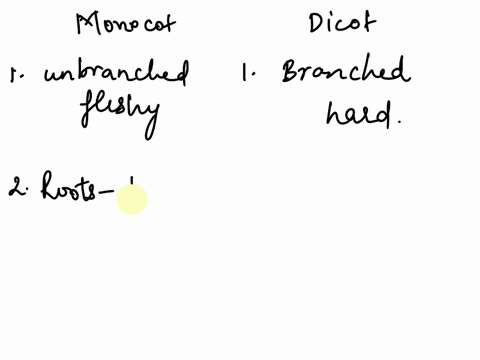 Monocot Dicot
1. unbranched 1. Branched
fleshy hard.
2. Roots–